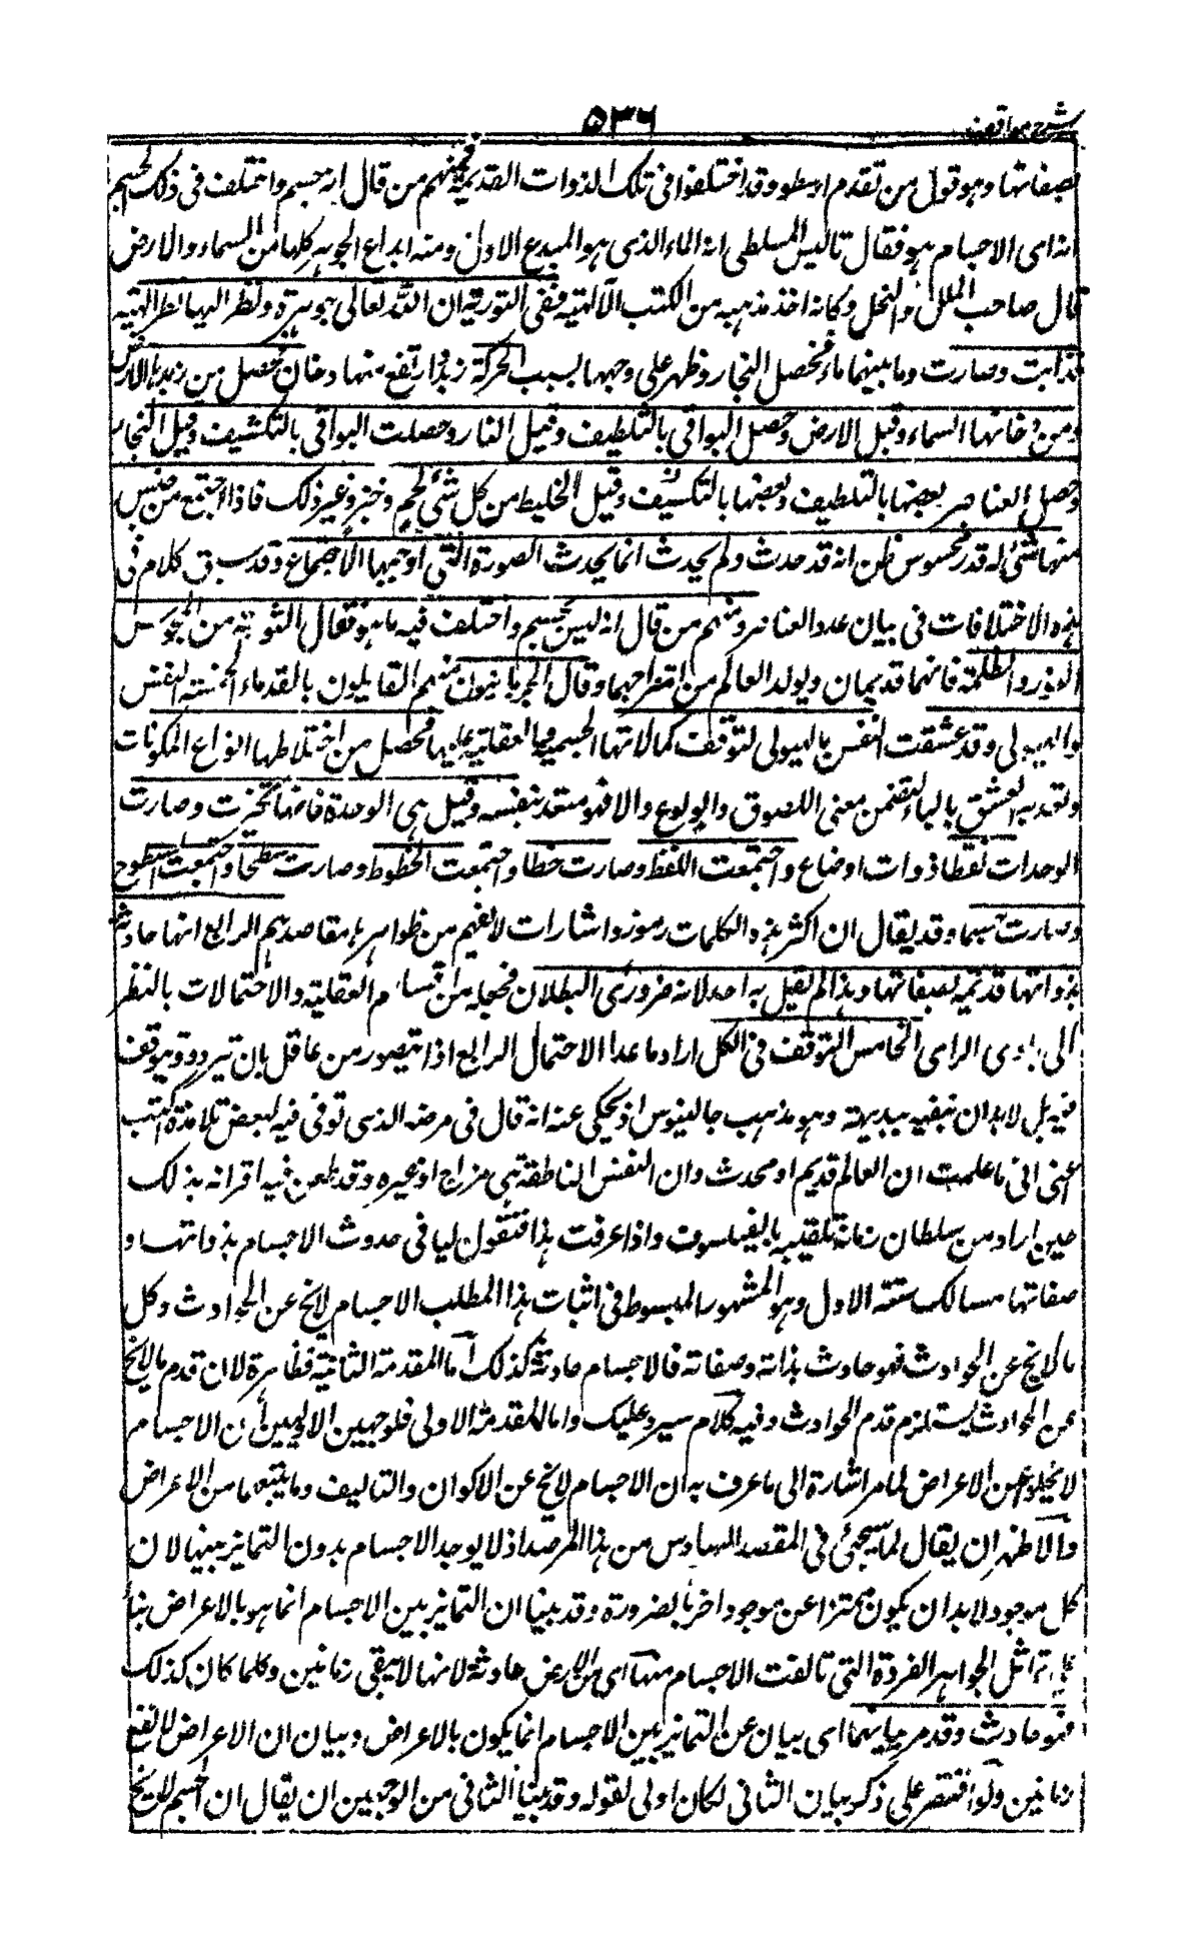 شرح مواقف
٥٣٦
بصفاتها وهو قول من تقدم ارسطو وقد اختلفوا فى تلك الذوات القديمة فمنهم من قال انه جسم واختلف فى ذلك الجسم
انه اى الاجسام هو فقال تاليس الملطى انه الماء الذى هو المبدع الاول ومنه ابداع الجوهر كلها من السماء والارض
قال صاحب الملل والنحل وكانه اخذ مذهبه من الكتب الآلهية ففى التورية ان الله تعالى جوهرة ونظر اليها نظر الهيبة
فذابت وصارت وما بينهما ماء فحصل البخار وظهر على وجهها بسبب الحركة زبد ارتفع منها دخان فحصل من زبدها الارض
ومن دخانها السماء وقيل الارض وحصل البواقى بالتلطيف وقيل النار وحصلت البواقى بالتكثيف وقيل البخار
وحصل العناصر بعضها بالتلطيف وبعضها بالتكثيف وقيل الخليط من كل شئ لحم وخبز وغير ذلك فاذا اجتمع من جنس
منها شئ له قدر محسوس ظن انه قد حدث ولم يحدث انما يحدث الصورة التى اوجبها الاجتماع وقد سبق كلام فى
هذه الاختلافات فى بيان عدد العناصر ومنهم من قال انه ليس بجسم واختلف فيه ما هو فقال الثنوية من المجوس
النور والظلمة فانهما قديمان وتولد العالم من امتزاجهما وقال الحرنانيون منهم القايلون بالقدماء الخمسة النفس
والهيولى وقد عشقت النفس بالهيولى لتوقف كمالاتها الحسية والعقلية عليها فحصل من اختلاطها انواع المكونات
وتعدية العشق بالباء لتضمن معنى اللصوق والولوع والا فهو متعد بنفسه وقيل هى الوحدة فانها تحيزت وصارت
الوحدات نقطا ذوات اوضاع واجتمعت النقط وصارت خطا واجتمعت الخطوط وصارت سطحا واجتمعت السطوح
وصارت جسما وقد يقال ان اكثر هذه الكلمات رموز واشارات لا يفهم من ظواهرها مقاصدهم الرابع انها حادثة
بذواتها قديمة بصفاتها وهذا لم يقل به احد لانه ضرورى البطلان فجعله من اقسام العقلية والاحتمالات بالنظر
الى بادى الراى الخامس التوقف فى الكل اراد ما عدا الاحتمال الرابع اذ لا يتصور من عاقل بان يتردد ويتوقف
فيه بل لا بد ان ينفيه ببديهة وهو مذهب جالينوس اذ يحكى عنه انه قال فى مرضه الذى توفى فيه لبعض تلامذته اكتب
عنى انى ما علمت ان العالم قديم او محدث وان النفس الناطقة هى مزاج او غيره وقد طعن فيه اقرانه بذلك
حين اراد من سلطان زمانه تلقيبه بالفيلسوف واذا عرفت هذا فنقول لنا فى حدوث الاجسام بذواتها و
صفاتها مسالك ستة الاول وهو المشهور المبسوط فى اثبات هذا المطلب الاجسام لا تخ عن الحوادث وكل
ما لا يخ عن الحوادث فهو حادث بذاته وصفاته فالاجسام حادثة كذلك اما المقدمة الثانية فظاهرة لان قدم ما لا يخ
عن الحوادث يستلزم قدم الحوادث وفيه كلام سيرد عليك واما المقدمة الاولى فلوجهين الاول ان الاجسام
لا يخلو عن الاعراض لما مر اشارة الى ما عرف به ان الاجسام لا تخ عن الاكوان والتاليف وما يتبعها من الاعراض
والاظهر ان يقال لما سيجئ فى المقصد السادس من هذا المرصد اذ لا يوجد الاجسام بدون التمايز بينها لان
كل موجود لا بد ان يكون ممتازا عن موجود اخر بالضرورة وقد بينا ان التمايز بين الاجسام انما هو بالاعراض بناء
على تماثل الجواهر الفردة التى تالفت الاجسام منها اى من الاعراض حادثة لانها لا يبقى زمانين وكلما كان كذلك
فهو حادث وقد مر بيانهما اى بيان عن التمايز بين الاجسام انما يكون بالاعراض وبيان ان الاعراض لا يبقى
زمانين ولو اقتصر على ذكر بيان الثانى لكان اولى لقوله وقد بينا الثانى من الوجهين ان يقال ان الجسم لا يخ